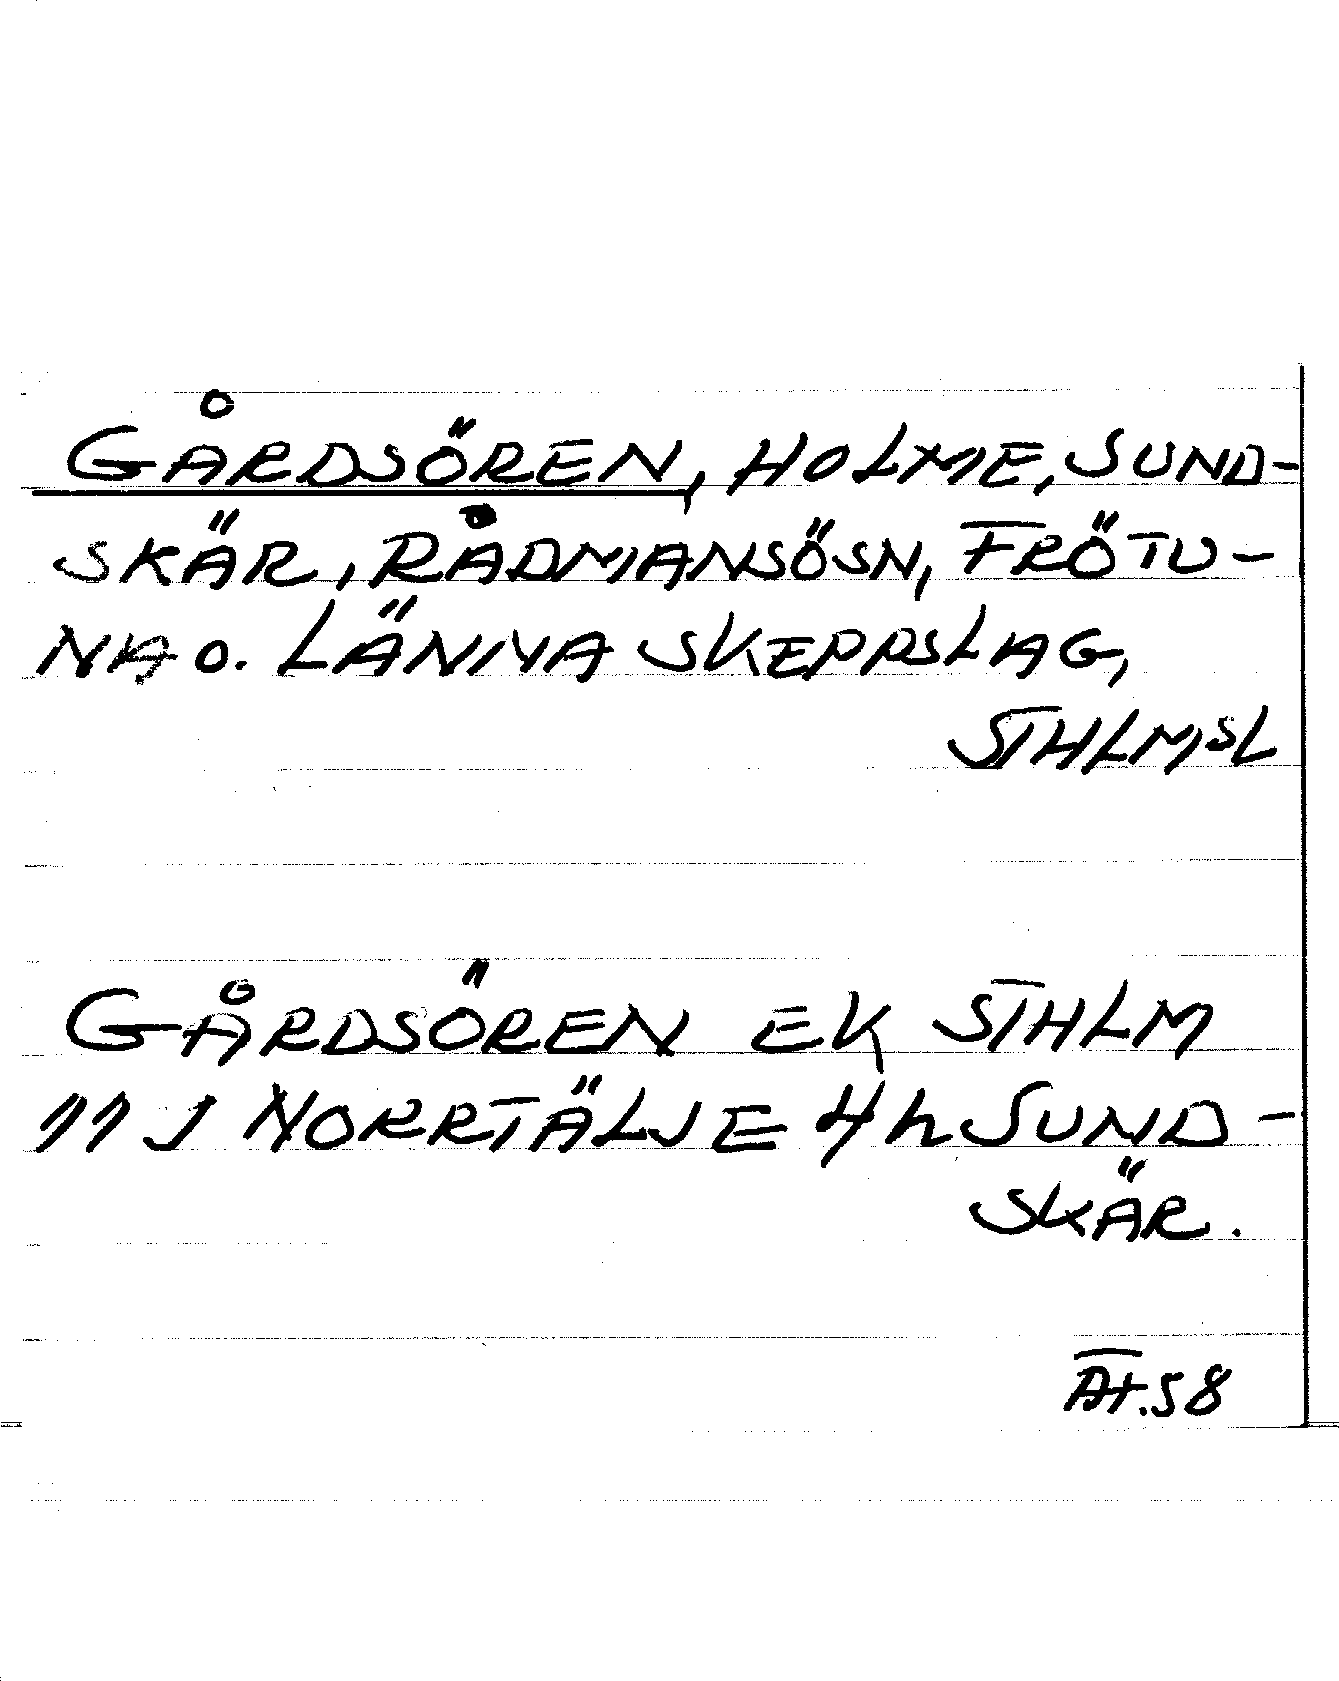 GÅRDSÖREN, HOLME, SUND-
SKÄR, RÅDMANSÖSN, FRÖTU-
NA O. LÄNNA SKEPPSLAG,
STHLMSL
GÅRDSÖREN EK STHLM
11 J NORRTÄLJE 4 h SUND-
SKÄR.
At.58